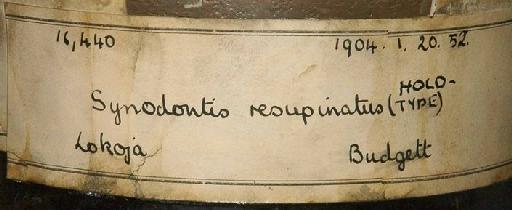 16,440 1904.1.20.52.
Synodontis resupinatus (HOLO-
TYPE)
Lokoja Budgett